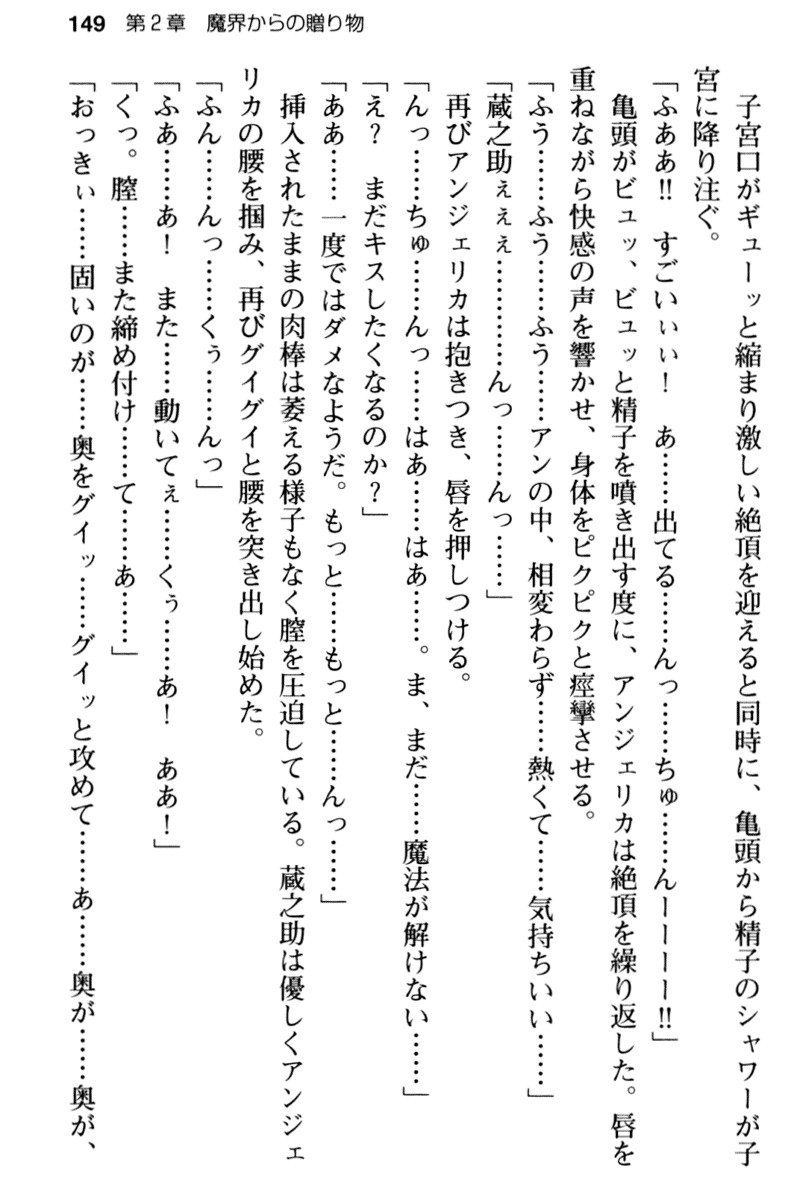 149 第2章 魔界からの贈り物
　子宮口がギューッと縮まり激しい絶頂を迎えると同時に、亀頭から精子のシャワーが子
宮に降り注ぐ。
「ふああ!! すごいぃぃ！ あ……出てる……んっ……ちゅ……んーーーー!!」
　亀頭がビュッ、ビュッと精子を噴き出す度に、アンジェリカは絶頂を繰り返した。唇を
重ねながら快感の声を響かせ、身体をピクピクと痙攣させる。
「ふう……ふう……ふう……アンの中、相変わらず……熱くて……気持ちいい……」
「蔵之助ぇぇぇ…………んっ……んっ……」
　再びアンジェリカは抱きつき、唇を押しつける。
「んっ……ちゅ……んっ……はあ……はあ……。ま、まだ……魔法が解けない……」
「え？ まだキスしたくなるのか？」
「ああ……一度ではダメなようだ。もっと……もっと……んっ……」
　挿入されたままの肉棒は萎える様子もなく膣を圧迫している。蔵之助は優しくアンジェ
リカの腰を掴み、再びグイグイと腰を突き出し始めた。
「ふん……んっ……くぅ……んっ」
「ふあ……あ！ また……動いてぇ……くぅ……あ！ ああ！」
「くっ。膣……また締め付け……て……あ……」
「おっきぃ……固いのが……奥をグイッ……グイッと攻めて……あ……奥が……奥が、